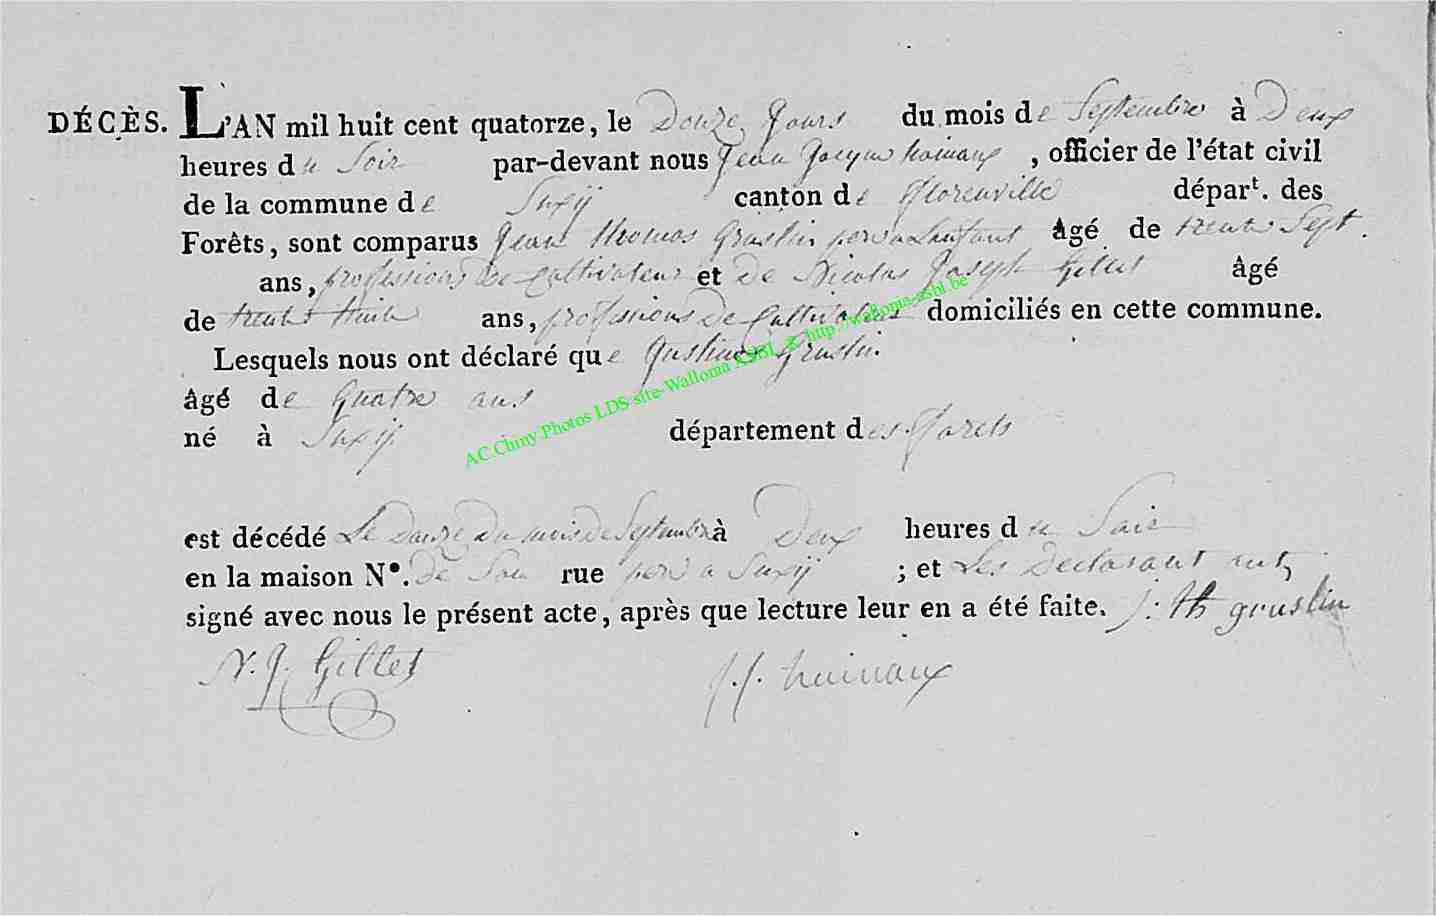 DÉCÈS. L'AN mil huit cent quatorze, le Douze Jours du mois de Septembre à Deux
heures du Soir par-devant nous Jean Jacque hainaux, officier de l'état civil
de la commune de Suxÿ canton de florenville départ. des
Forêts, sont comparus Jean thomas Gruslin pere a Lanfant âgé de trente Sept.
ans, professions de Cultivateur et de Nicolas Joseph Gillet âgé
de trente huit ans, professions de Cultivateur domiciliés en cette commune.
Lesquels nous ont déclaré que Gruslin.
âgé de quatre ans
né à Suxÿ département des forets
est décédé Le Douze du mois de Septembre à Deux heures du Soir
en la maison N°. de Son rue pere a Suxÿ ; et Les Declarant ont
signé avec nous le présent acte, après que lecture leur en a été faite. J: th gruslin
N. J. Gillet J. J. hainaux
AC.Chiny Photos LDS site-Wallonia ASBL & http://wallonia-asbl.be